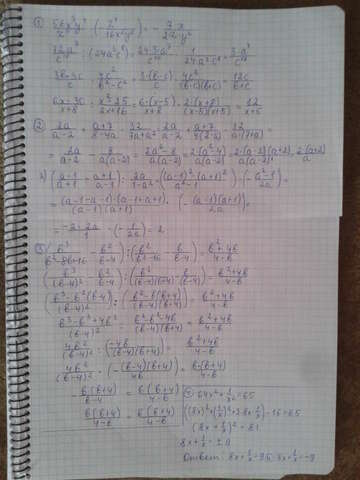 ① 56x³y³ / x⁵ · (− 2³ / 16x²y²) = − 7x / 2z²y
: (24a²c⁸) = 24·3·a³ / c¹⁰ · 1 / 24a²c⁸ = 3a³ /
3b − 3c / c · 4c² / b² − c² = 3·(b−c) / c · 4c² / (b−c)(b+c) = 12c / b+c
6x − 30 / x+8 : x² − 25 / 2x+16 = 6·(x−5) / x+8 · 2·(x+8) / (x−5)(x+5) = 12 / x+5
② 2a / a−2 + a+7 / 8−4a · 32 / 7a+a² = 2a / a−2 − a+7 / 4(a−2) · 32 / a(7+a) =
= 2a / a−2 − 8 / a(a−2) = 2a² − 8 / a(a−2) = 2(a²−4) / a(a−2) = 2·(a−2)(a+2) / a(a−2) = 2·(a+2) / a
(a−1 / a+1 − a+1 / a−1) : 2a / 1−a² = (a−1)² − (a+1)² / a²−1 · (− a²−1 / 2a) =
= (a−1−a−1)·(a−1+a+1) / (a−1)(a+1) · (− (a−1)(a+1) / 2a) =
= −2·2a / 1 · (− 1 / 2a) = 2
③ (b³ / b²−8b+16 − b² / b−4) : (b² / b²−16 − b / b−4) = b²+4b / 4−b
(b³ / (b−4)² − b² / b−4) : (b² / (b−4)(b+4) − b / b−4) = b²+4b / 4−b
(b³ − b²(b−4) / (b−4)²) : (b² − b(b+4) / (b−4)(b+4)) = b²+4b / 4−b
b³ − b³ + 4b² / (b−4)² : b² − b² − 4b / (b−4)(b+4) = b²+4b / 4−b
4b² / (b−4)² : (−4b / (b−4)(b+4)) = b²+4b / 4−b
4b² / (b−4)² · (− (b−4)(b+4) / 4b) = b·(b+4) / 4−b
− b(b+4) / b−4 = b(b+4) / 4−b
b(b+4) / 4−b = b(b+4) / 4−b
④ 64x² + 1 / x² = 65
(8x)² + (1/x)² + 2·8x·1/x − 16 = 65
(8x + 1/x)² = 81
8x + 1/x = ± 9
Ответ: 8x + 1/x = 9 8x + 1/x = −9